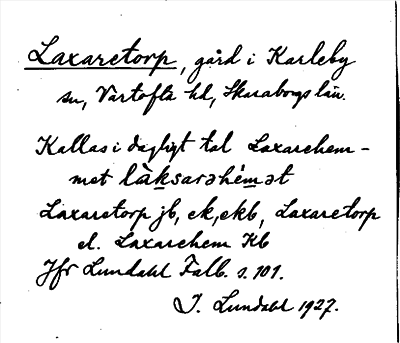 Laxaretorp, gård i Karleby
sn, Vartofta hd, Skaraborgs län.
Kallas i dagligt tal Laxarehem-
met làksarəhémət
Laxaretorp jb, ek, ekb, Laxaretorp
el. Laxarehem Kb
Jfr Lundahl Falb. s. 101.
I. Lundahl 1927.